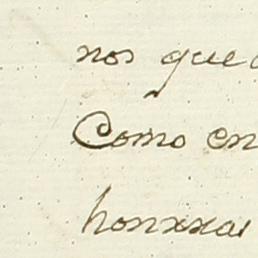 nos que
Como en
honrras